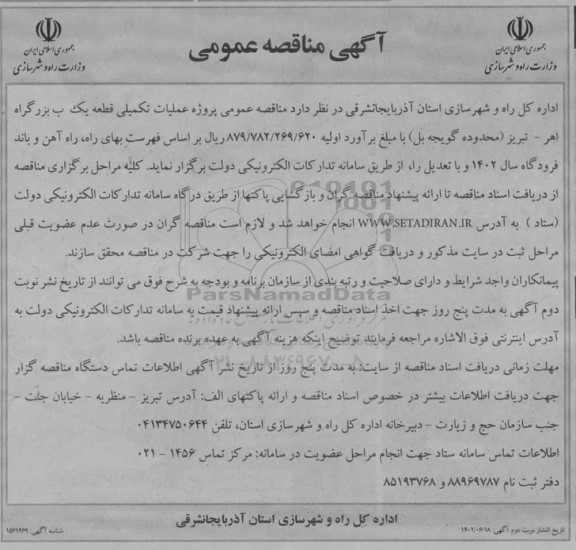 آگهی مناقصه عمومی
جمهوری اسلامی ایران
وزارت راه و شهرسازی
جمهوری اسلامی ایران
وزارت راه و شهرسازی
اداره کل راه و شهرسازی استان آذربایجانشرقی در نظر دارد مناقصه عمومی پروژه عملیات تکمیلی قطعه یک ب بزرگراه
اهر - تبریز (محدوده گویجه بل) با مبلغ برآورد اولیه ۸۷۹/۷۸۲/۲۶۹/۶۲۰ ریال بر اساس فهرست بهای راه، راه آهن و باند
فرودگاه سال ۱۴۰۲ و با تعدیل را، از طریق سامانه تدارکات الکترونیکی دولت برگزار نماید. کلیه مراحل برگزاری مناقصه
از دریافت اسناد مناقصه تا ارائه پیشنهاد مناقصه گران و بازگشایی پاکتها از طریق درگاه سامانه تدارکات الکترونیکی دولت
(ستاد ) به آدرس WWW.SETADIRAN.IR انجام خواهد شد و لازم است مناقصه گران در صورت عدم عضویت قبلی
مراحل ثبت در سایت مذکور و دریافت گواهی امضای الکترونیکی را جهت شرکت در مناقصه محقق سازند.
پیمانکاران واجد شرایط و دارای صلاحیت و رتبه بندی از سازمان برنامه و بودجه به شرح فوق می توانند از تاریخ نشر نوبت
دوم آگهی به مدت پنج روز جهت اخذ اسناد مناقصه و سپس ارائه پیشنهاد قیمت به سامانه تدارکات الکترونیکی دولت به
آدرس اینترنتی فوق الاشاره مراجعه فرمایند. توضیح اینکه هزینه آگهی به عهده برنده مناقصه باشد.
مهلت زمانی دریافت اسناد مناقصه از سایت: به مدت پنج روز از تاریخ نشر آگهی اطلاعات تماس دستگاه مناقصه گزار
جهت دریافت اطلاعات بیشتر در خصوص اسناد مناقصه و ارائه پاکتهای الف: آدرس تبریز - منظریه - خیابان جلت -
جنب سازمان حج و زیارت - دبیرخانه اداره کل راه و شهرسازی استان، تلفن ۰۴۱۳۴۷۵۰۶۴۴
اطلاعات تماس سامانه ستاد جهت انجام مراحل عضویت در سامانه: مرکز تماس ۱۴۵۶ - ۰۲۱
دفتر ثبت نام ۸۸۹۶۹۷۸۷ و ۸۵۱۹۳۷۶۸
اداره کل راه و شهرسازی استان آذربایجانشرقی
تاریخ انتشار نوبت دوم آگهی: ۱۴۰۲/۰۶/۱۸
شناسه آگهی: ۱۵۶۱۹۶۹
ParsNamadData